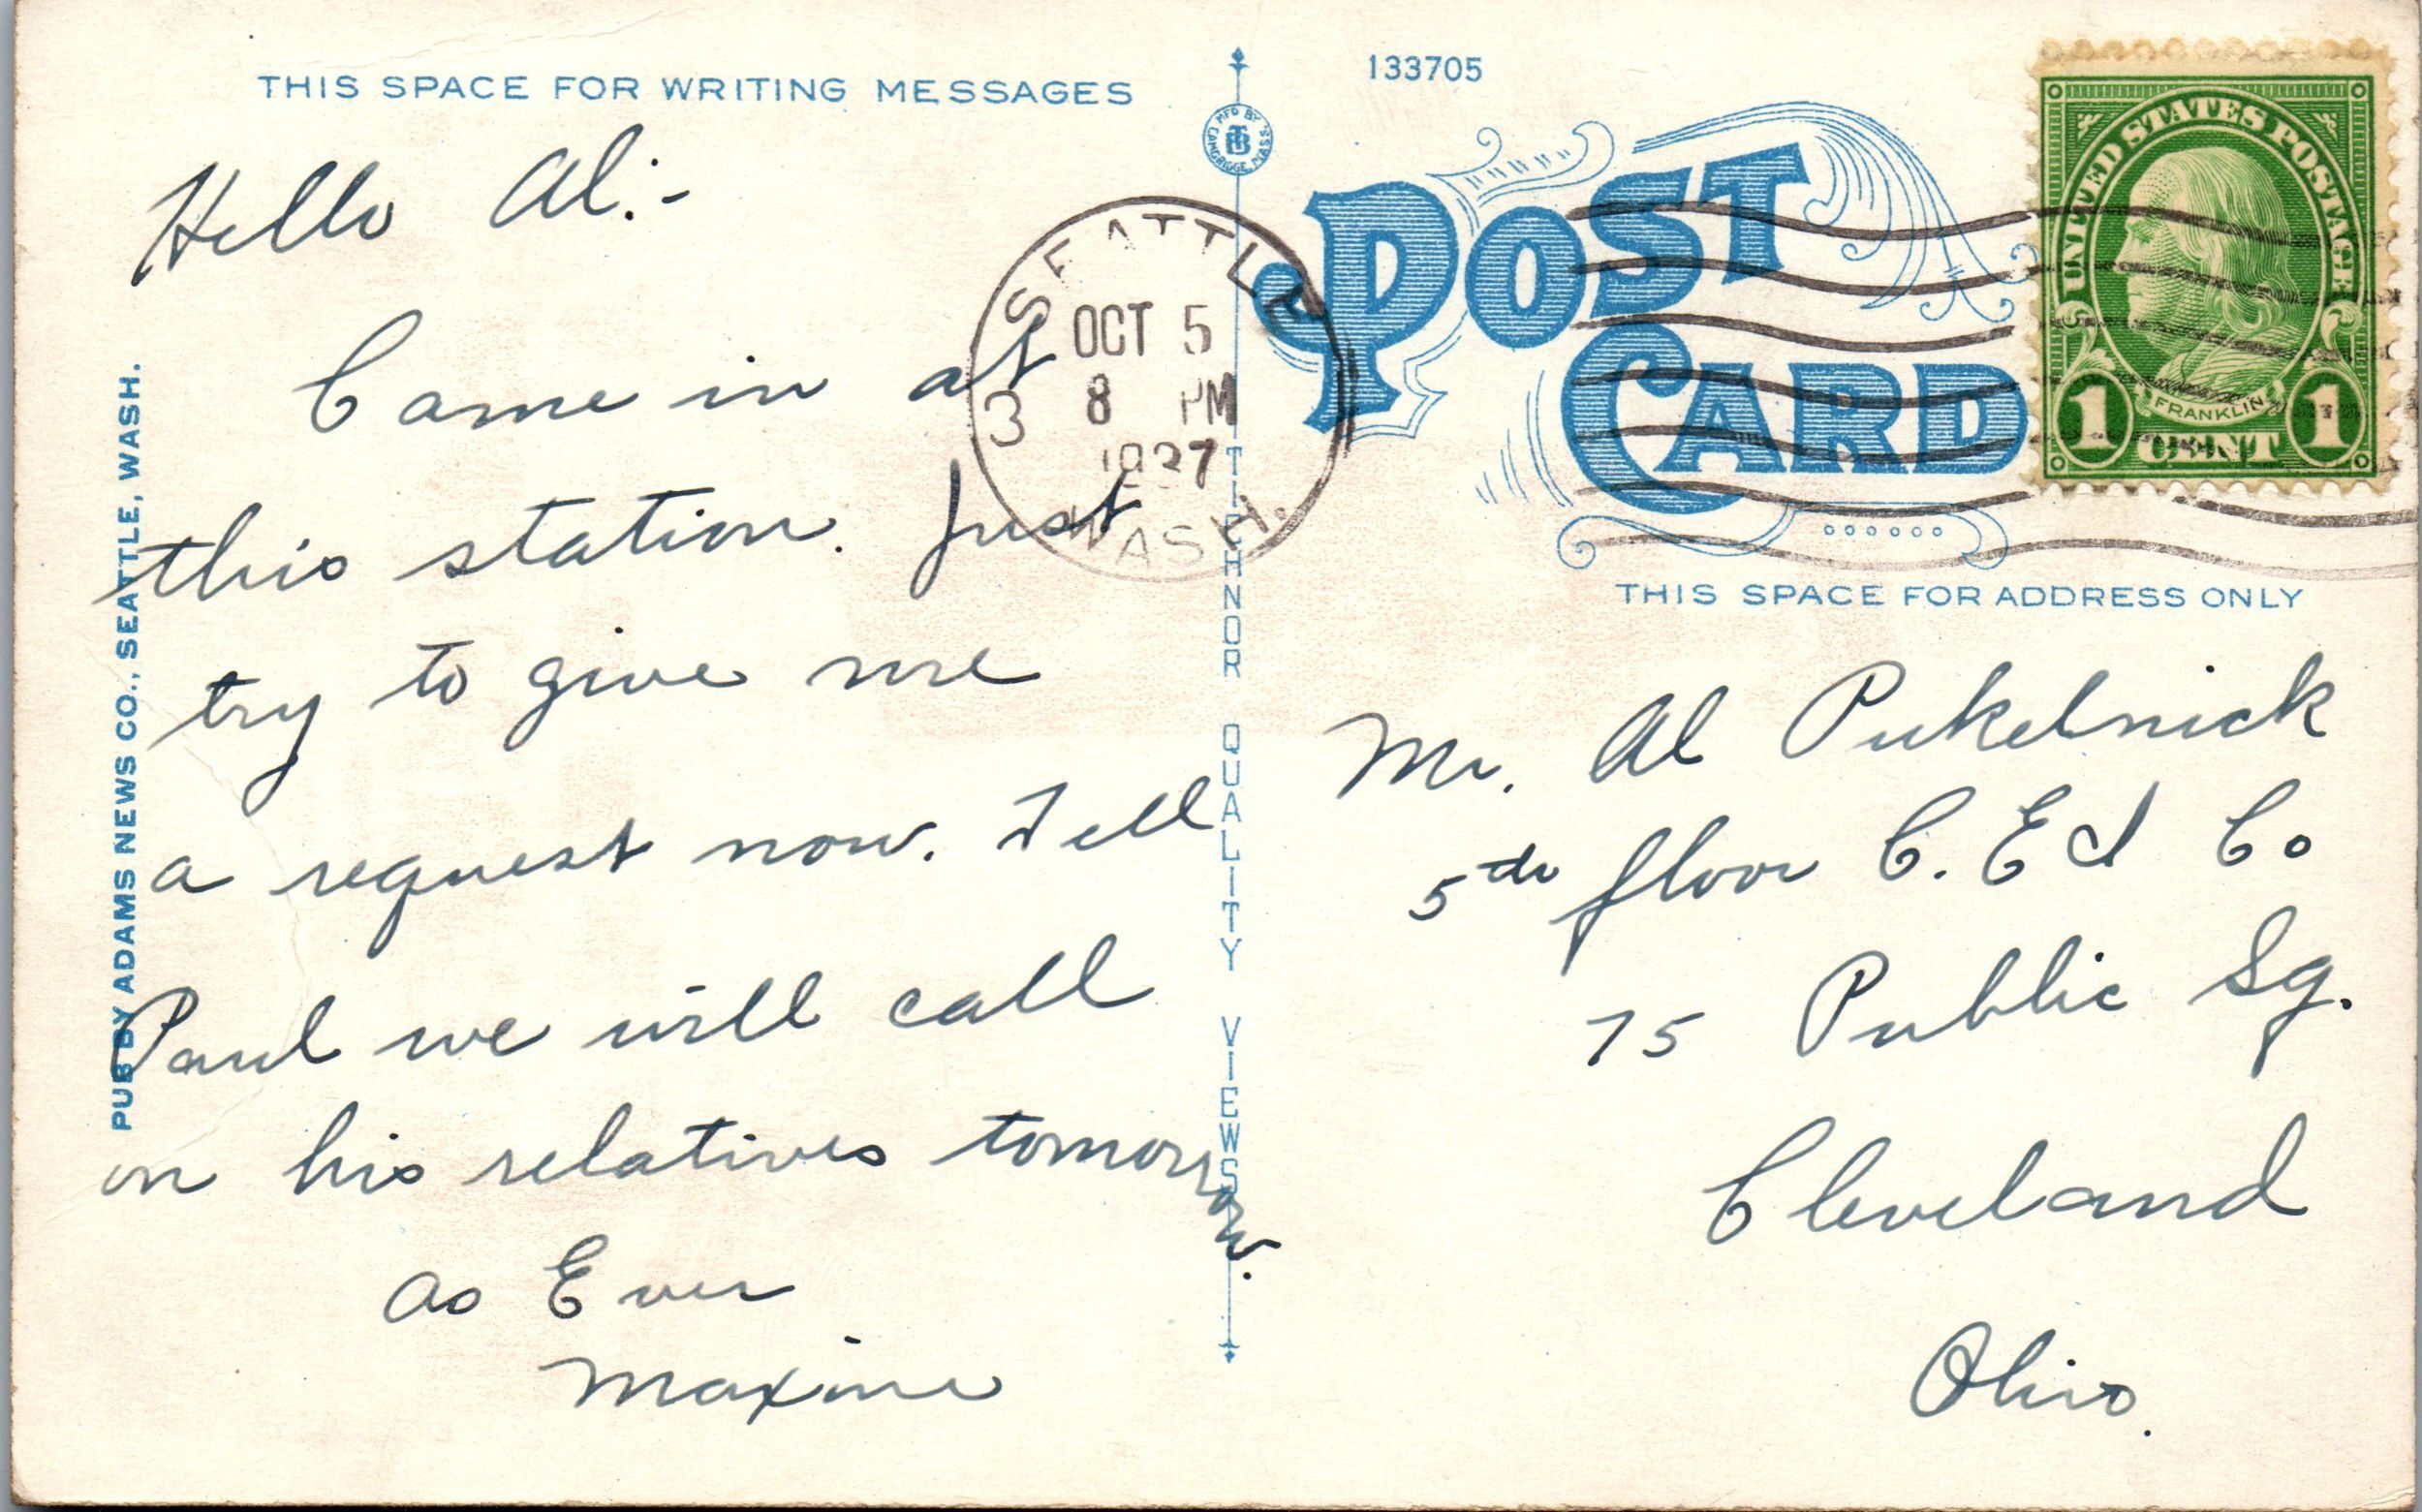 THIS SPACE FOR WRITING MESSAGES
Hello Al:-
Came in at
this station. Just
try to give me
a request now. Tell
Paul we will call
on his relatives tomorrow.
As Ever
Maxine
PUB BY ADAMS NEWS CO., SEATTLE, WASH.
MFD BY
CAMBRIDGE, MASS
TICHNOR QUALITY VIEWS
SEATTLE
3
OCT 5
8 PM
1937
WASH.
133705
POST
CARD
UNITED STATES POSTAGE
FRANKLIN
1 CENT 1
THIS SPACE FOR ADDRESS ONLY
Mr. Al Pukelnick
5th floor C. Ed Co
75 Public Sq.
Cleveland
Ohio.